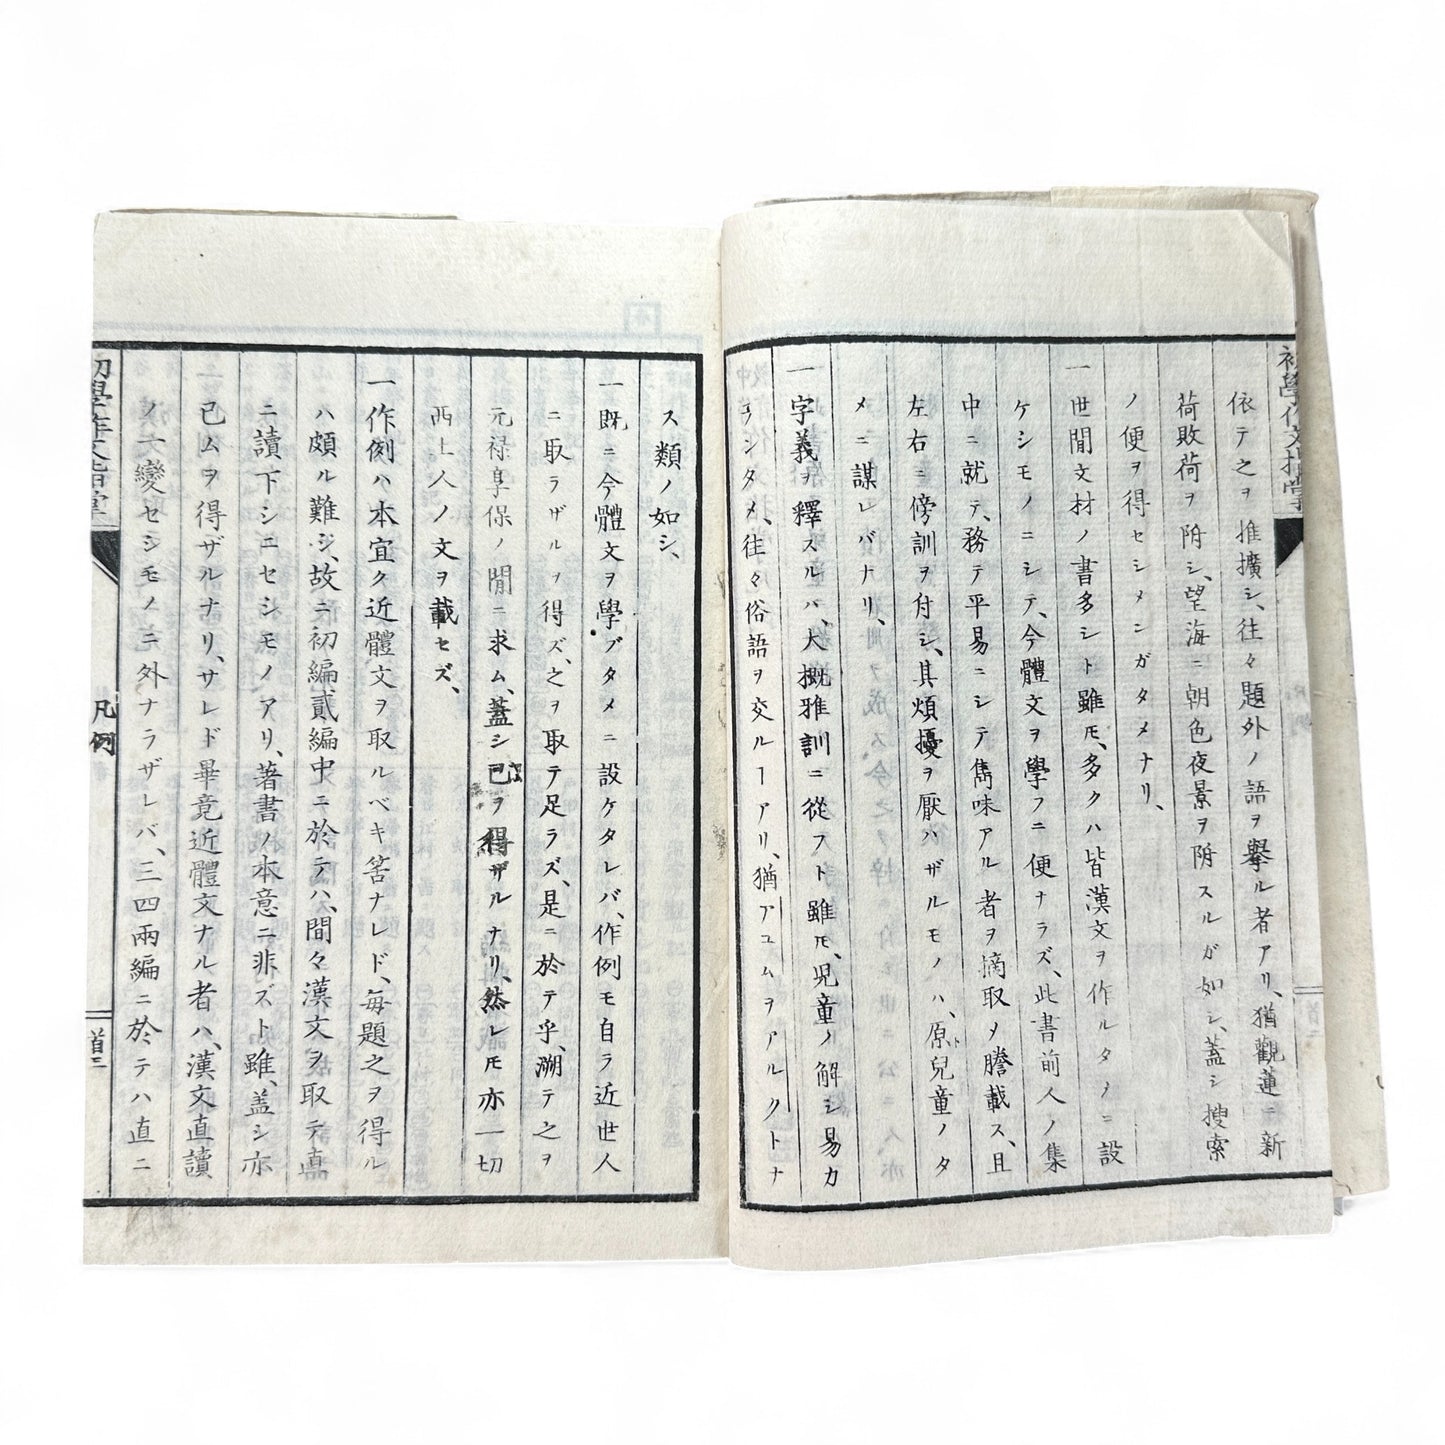 依テ之ヲ推擴シ、往々題外ノ語ヲ擧ル者アリ、猶觀蓮ニ新
荷敗荷ヲ附シ、望海ニ朝色夜景ヲ附スルガ如シ、蓋シ搜索
ノ便ヲ得セシメンガタメナリ、
一世間文材ノ書多シト雖モ、多クハ皆漢文ヲ作ルタメニ設
ケシモノニシテ、今體文ヲ學フニ便ナラズ、此書前人ノ集
中ニ就テ、務テ平易ニシテ雋味アル者ヲ摘取メ謄載ス、且
左右ニ傍訓ヲ付シ、其煩擾ヲ厭ハザルモノハ、原ト兒童ノタ
メニ謀レバナリ、
一字義ヲ釋スルハ、大概雅訓ニ從フト雖モ、児童ノ解シ易カ
ラシタメ、往々俗語ヲ交ルヿアリ、猶アユムヲアルクトナ
ス類ノ如シ、
一既ニ今體文ヲ學ブタメニ設ケタレバ、作例モ自ラ近世人
ニ取ラザルヲ得ズ、之ヲ取テ足ラズ、是ニ於テ乎、溯テ之ヲ
元禄享保ノ間ニ求ム、蓋シ已ヲ得ザルナリ、然レモ亦一切
西土人ノ文ヲ載セズ、
一作例ハ本宜ク近體文ヲ取ルベキ筈ナレド、毎題之ヲ得ル
ハ頗ル難シ、故ニ初編貳編中ニ於テハ、間々漢文ヲ取テ直
ニ讀下シニセシモノアリ、著書ノ本意ニ非ズト雖、盖シ亦
已ムヲ得ザルナリ、サレド畢竟近體文ナル者ハ、漢文直讀
ノ一變セシモノニ外ナラザレバ、三四兩編ニ於テハ直ニ
凡例